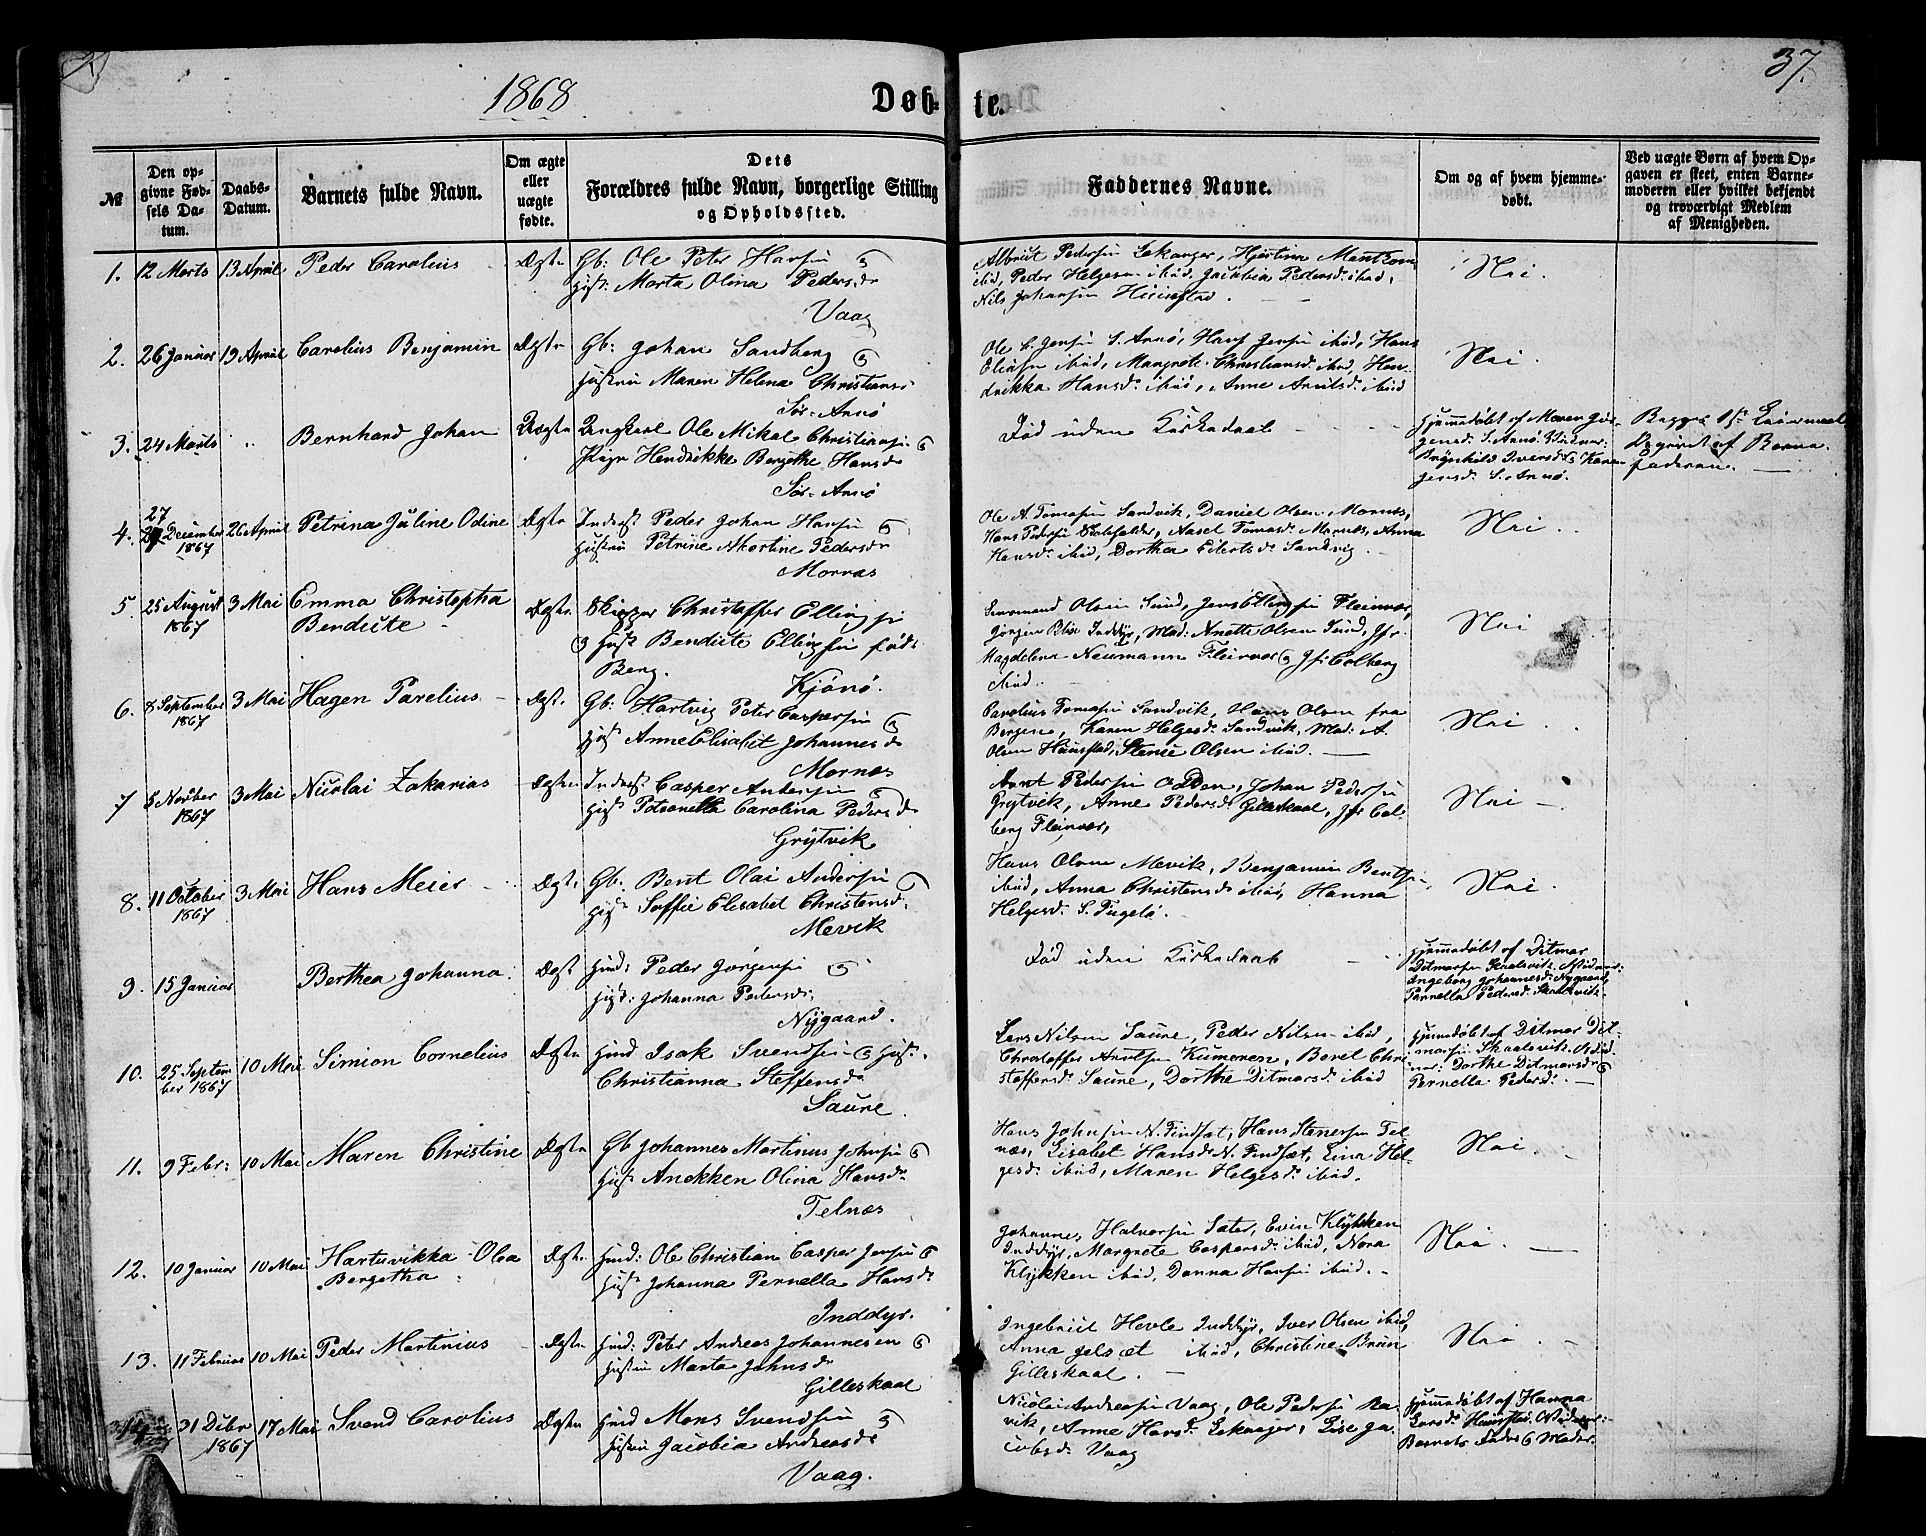 1868
Døb-
te.
37.
№
Den op-
givne Fød-
sels Da-
tum.
Daabs-
Datum.
Barnets fulde Navn.
Om ægte
eller
uægte
fødte.
Dets
Forældres fulde Navn, borgerlige Stilling
og Opholdssted.
Faddernes Navne.
Om og af hvem hjemme-
døbt.
Ved uægte Børn af hvem Op-
gaven er skeet, enten Barne-
moderen eller hvilket bekjendt
og troværdigt Medlem
af Menigheden.
1. 12 Marts 13 April Peder Carolius Ægte Gb: Ole Peter Hansen &
Hust: Marta Olina Pedersdr
Vaag
Albrigt Pedersen Lekanger, Hjertine Mentzoni
ibid, Peder Helgesen ibid, Jacobia Pedersd: ibid,
Nils Johansen Houstad.
Nei.
2. 26 Januar 19 April Carelius Benjamin Ægte Gb: Johan Sandberg &
Hustru Maren Helena Christians:
Sør-Arnø
Ole C. Jensen S. Arnø, Hans Jensen ibid, Hans
Olsen ibid, Margrete Christiansd: ibid, Hen-
drikka Hansd: ibid, Anne Arntsd: ibid
Nei.
3. 24 Marts " Bernhard Johan Uægte Ungkarl Ole Mikal Christiansen &
Pige Hendrikke Bergethe Hansdr
Sør-Arnø
Død uden Kirkedaab
Hjemmedøbt af Maren Jør-
gensd: S. Arnø, Vidner:
Brynhild Iversd & Karen
gensd: S. Arnø.
Begges 1ste Leiermaal
Begivet af Barne-
faderen.
4. 27 December 26 April Petrina Juline Odine Ægte Inderst Peder Johan Hansen &
1867
Hustru Petrine Martine Pedersdr
Mornæs
Ole A. Tomasen Sandvik, Daniel Olsen Mornæs,
Hans Pedersen Storfolden, Aasel Tomasd: Mornæs, Anna
Hansd: ibid, Dorthea Eilertsdr Sandvig.
Nei.
5. 25 August 3 Mai Emma Christopha Ægte Skipper Christoffer Ellingsen
1867
Bendicte
& Hust Bendicte Ellingsen født
Berg.
Kjønø.
Olsen Sund, Jens Ellingsen Fleinvær,
Jørgen Blix Inddyr, Mad: Anette Olsen Sund, Jfr.
Magdelena Neumann Fleinvær & Jfr Colberg
ibid.
Nei
6. 8 September 3 Mai Hagen Parelius Ægt. Gb: Hartvig Peter Caspersen &
1867
Hust Anne Elisabet Johannesdr
Mornæs
Parelius Tomasen Sandvik, Hans Olsen fra
Bergen, Karen Helgesd: Sandvik, Mad: A.
Olsen Haustad, Stene Olsen ibid.
Nei.
7 5 Novber 3 Mai Nicolai Zakarias Ægte Inderst Casper Andersen &
1867
Hust Petronella Carolina Pedersdr
Grytvik
Arnt Pedersen Odden, Johan Pedersen
Grytvik, Anne Pedersd: Gilleskaal, Jfr Col-
berg Fleinvær,
Nei
8. 11 October 3 Mai Hans Meier Ægt. Gb: Bent Olai Andersen &
1867
Hust Soffie Elisabet Christensd:
Mevik
Hans Olsen Mevik, Benjamin Bentsen,
ibid, Anna Christensd: ibid, Hanna
Helgesd: S. Fugelø.
Nei.
9. 15 Januar Berthea Johanna Ægt Huusd: Peder Jørgensen &
Hust: Johanna Pedersd:
Nygaard.
Død uden Kirkedaab
Hjemmedøbt af Ditmar
Ditmarsen Skaalsvik. Vidner:
Ingeborg Johannesd: Nygaard,
Pernella Pedersd: Skaalsvik.
10. 25 Septem 10 Mai Simion Cornelius Ægte Huusd Isak Svendsen & Hust.
ber 1867
Christianna Steffensdr
Saure.
Lars Nilsen Saure, Peder Nilsen ibid,
Christoffer Arntsen Kumeren, Beret Chri-
stoffersd: Saure, Dorthe Ditmarsd: ibid
Hjemmedøbt af Ditmar Dit-
marsen Skaalsvik. Vid-
ner: Dorthe Ditmarsd: &
Pernella Pedersd:
11. 9 Febr: 10 Mai Maren Christine Ægte Gb Johannes Martinus Johnsen &
Hust Anekken Olina Hansdr
Telnæs
Hans Johnsen N. Findset, Hans Stenersen Tel-
næs, Lisabet Hansd: N. Findset, Lina Hel-
gesd: ibid, Maren Helgesd: ibid.
Nei.
12. 10 Januar 10 Mai Hartuvikka Olea Ægte. Huusd: Ole Christian Casper Jensen &
Bergetha
Hust Johanna Pernella Hansdr
Inddyr.
Johannes Halvorsen Sater, Evin Klykken
Inddyr, Margrete Caspersd: ibid, Nora
Klykken ibid, Danna Hansen ibid.
Nei.
13. 11 Februar 10 Mai Peder Martinius Ægte Huusd: Peter Andreas Johannesen &
Hustru Marta Johnsdr
Gilleskaal
Ingebrigt Hevle Inddyr, Iver Olsen ibid,
Anna Jelsæt ibid, Christine Bruun
Gilleskaal.
Nei.
14. 31 Decbr 17 Mai Svend Carolius Ægte Huusd Mons Svendsen &
1867
Hustru Jacobia Andreasdr
Vaag.
Nicolai Andreasen Vaag, Ole Pedersen Ra-
vik, Anne Hansd: Lekanger, Lise Ja-
cobsd: Vaag
Hjemmedøbt af Hanna
Larsd: Haustad, Vidner:
Barnets Fader & Moder.